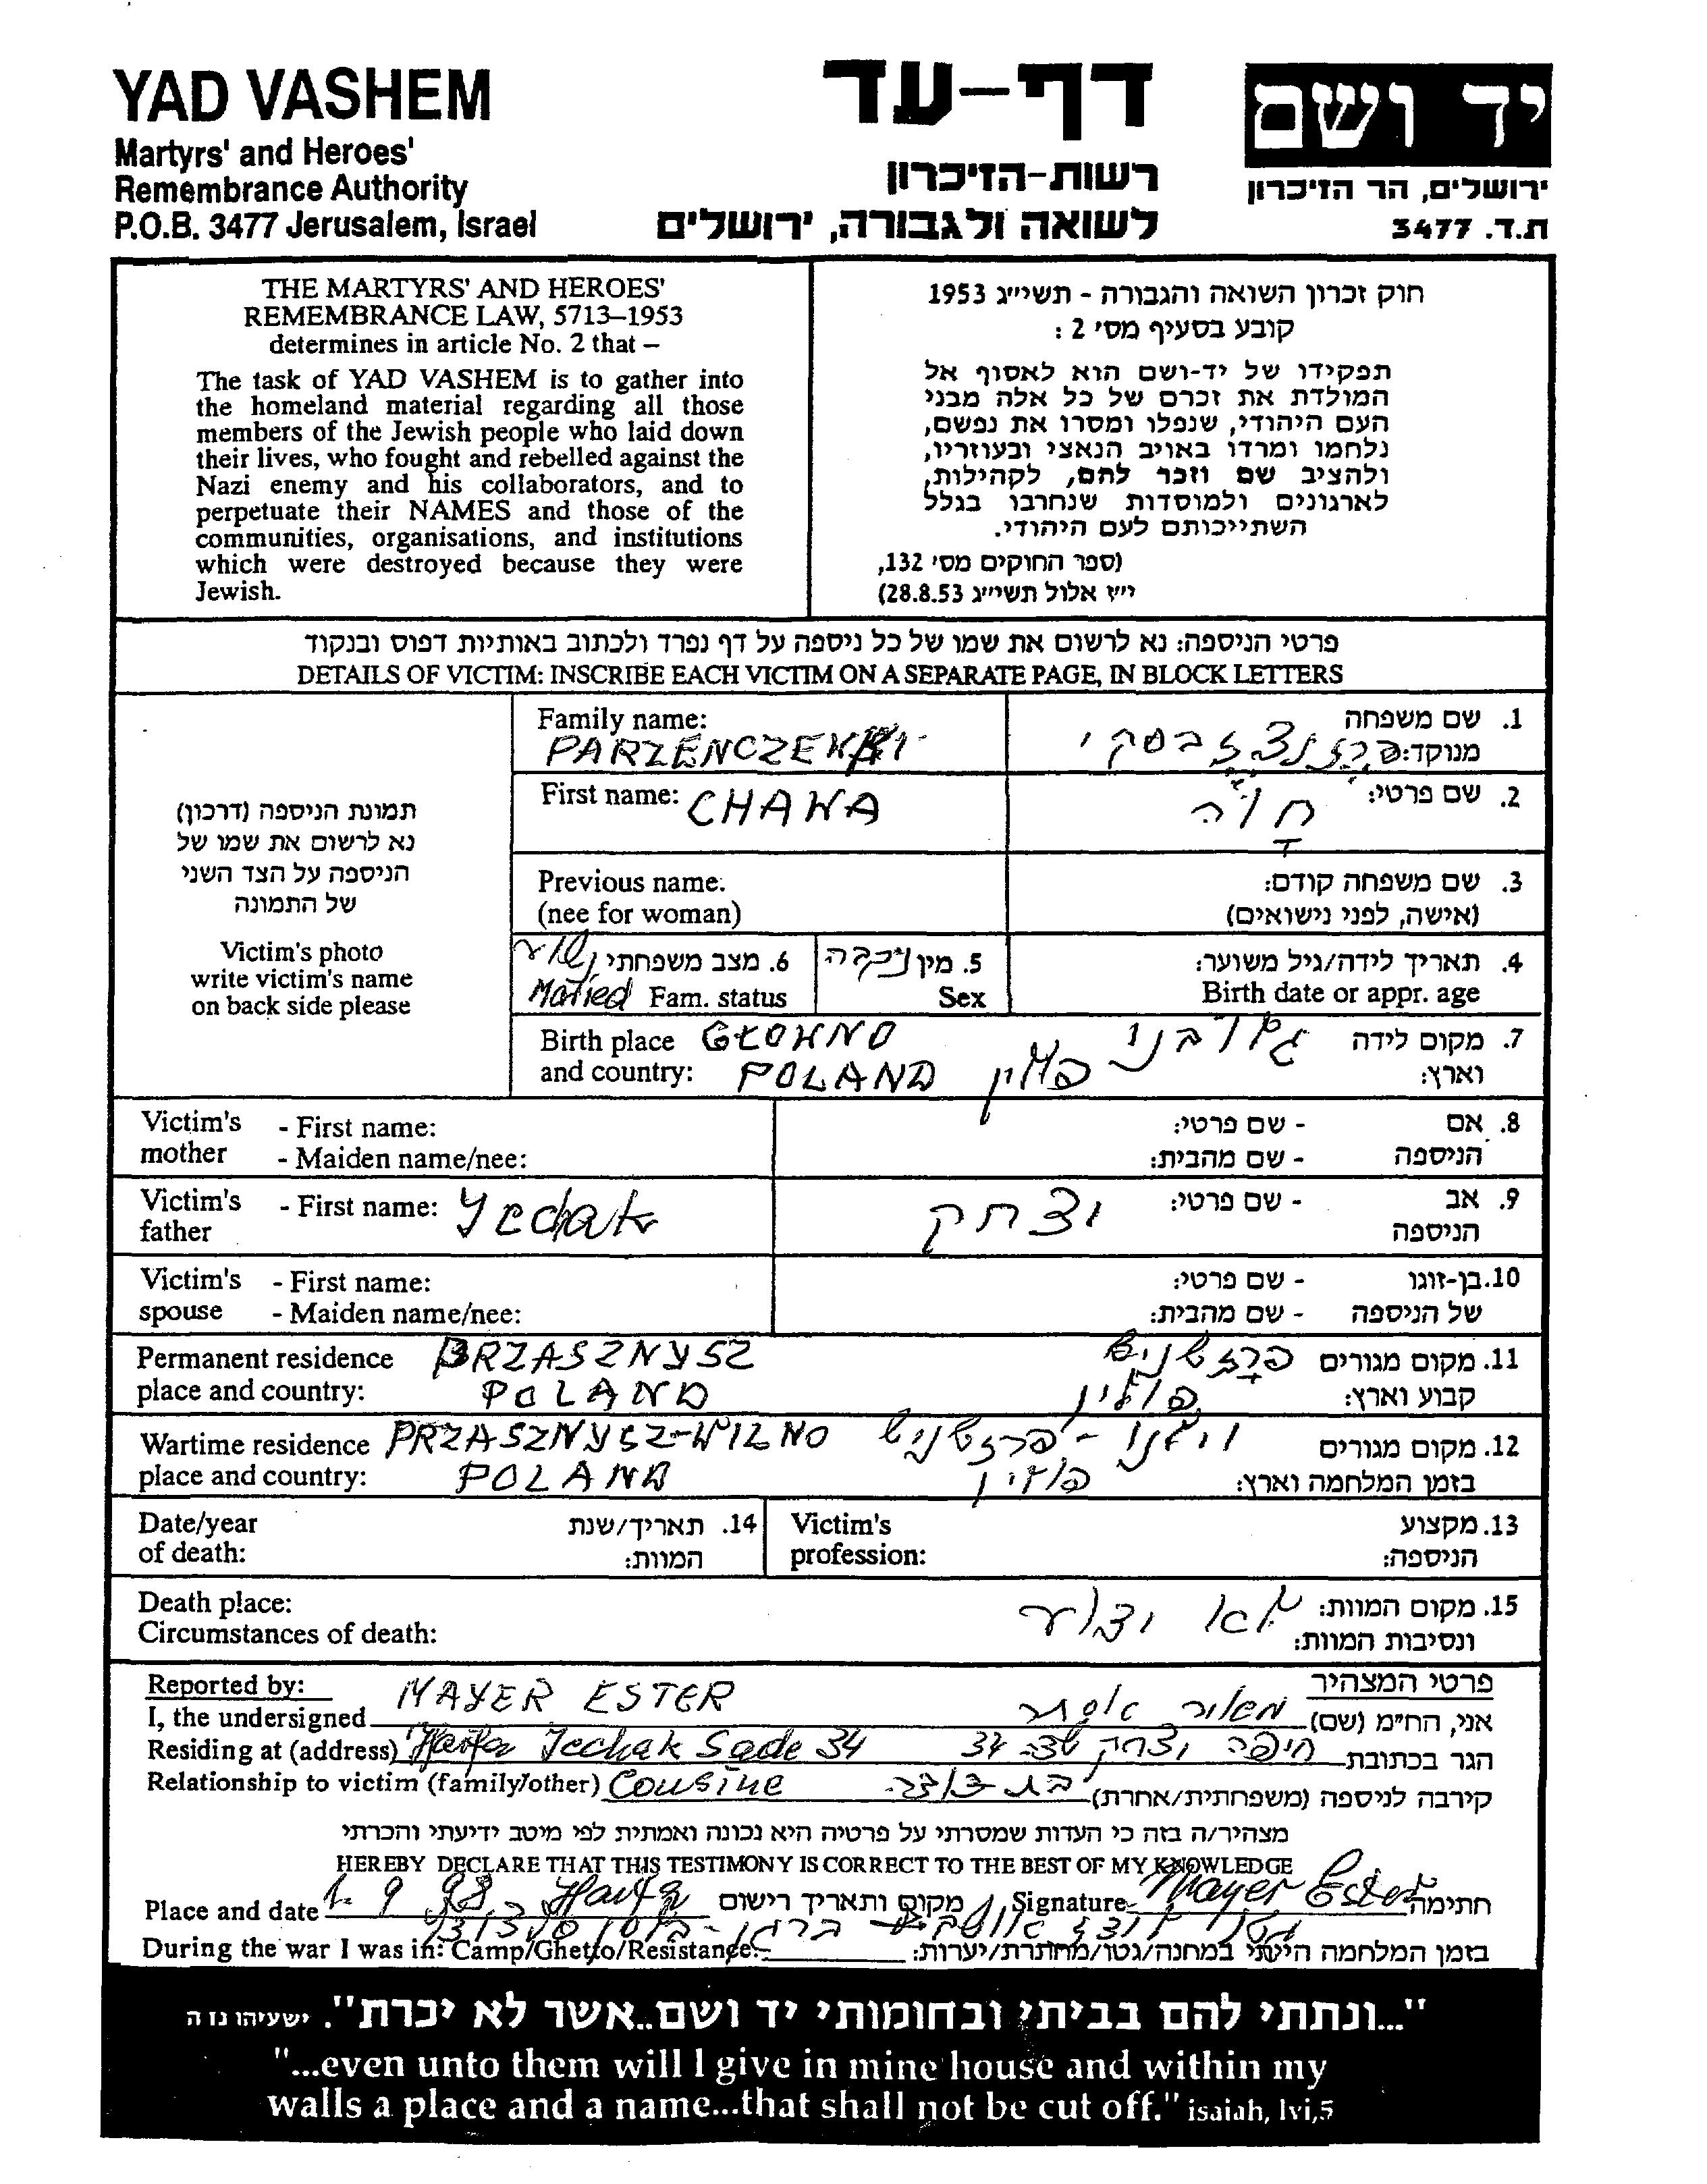 YAD VASHEM
Martyrs' and Heroes'
Remembrance Authority
P.O.B. 3477 Jerusalem, Israel
דף-עד
רשות-הזיכרון
לשואה ולגבורה, ירושלים
יד ושם
ירושלים, הר הזיכרון
ת.ד. 3477
THE MARTYRS' AND HEROES'
REMEMBRANCE LAW, 5713–1953
determines in article No. 2 that –
The task of YAD VASHEM is to gather into
the homeland material regarding all those
members of the Jewish people who laid down
their lives, who fought and rebelled against the
Nazi enemy and his collaborators, and to
perpetuate their NAMES and those of the
communities, organisations, and institutions
which were destroyed because they were
Jewish.
חוק זכרון השואה והגבורה - תשי״ג 1953
קובע בסעיף מס׳ 2 :
תפקידו של יד-ושם הוא לאסוף אל
המולדת את זכרם של כל אלה מבני
העם היהודי, שנפלו ומסרו את נפשם,
נלחמו ומרדו באויב הנאצי ובעוזריו,
ולהציב שם וזכר להם, לקהילות,
לארגונים ולמוסדות שנחרבו בגלל
השתייכותם לעם היהודי.
(ספר החוקים מס׳ 132,
י״ז אלול תשי״ג 28.8.53)
פרטי הניספה: נא לרשום את שמו של כל ניספה על דף נפרד ולכתוב באותיות דפוס ובנקוד
DETAILS OF VICTIM: INSCRIBE EACH VICTIM ON A SEPARATE PAGE, IN BLOCK LETTERS
תמונת הניספה (דרכון)
נא לרשום את שמו של
הניספה על הצד השני
של התמונה
Victim's photo
write victim's name
on back side please
Family name: 1. שם משפחה
PARZENCZEWSKI מנוקד:
First name: CHAWA 2. שם פרטי: חוה
Previous name: 3. שם משפחה קודם:
(nee for woman) (אישה, לפני נישואים)
6. מצב משפחתי נשוי 5. מין נקבה 4. תאריך לידה/גיל משוער:
Maried Fam. status Sex Birth date or appr. age
Birth place GŁOWNO 7. מקום לידה גלובנו
and country: POLAND וארץ: פולין
Victim's - First name: 8. אם - שם פרטי:
mother - Maiden name/nee: הניספה - שם מהבית:
Victim's - First name: Yechak 9. אב - שם פרטי: יצחק
father הניספה
Victim's - First name: 10. בן-זוגו - שם פרטי:
spouse - Maiden name/nee: של הניספה - שם מהבית:
Permanent residence PRZASZNYSZ 11. מקום מגורים פרזשניש
place and country: POLAND קבוע וארץ: פולין
Wartime residence PRZASZNYSZ-WILNO 12. מקום מגורים וילנו - פרזשניש
place and country: POLAND בזמן המלחמה וארץ: פולין
Date/year 14. תאריך/שנת Victim's 13. מקצוע
of death: המוות: profession: הניספה:
Death place: 15. מקום המוות: לא ידוע
Circumstances of death: ונסיבות המוות:
Reported by: MAYER ESTER פרטי המצהיר
I, the undersigned אני, הח״מ (שם) מאיר אסתר
Residing at (address) Haifa Jechak Sade 34 הגר בכתובת חיפה יצחק שדה 34
Relationship to victim (family/other) Cousine קירבה לניספה (משפחתית/אחרת) בת דודה
מצהיר/ה בזה כי העדות שמסרתי על פרטיה היא נכונה ואמתית לפי מיטב ידיעתי והכרתי
HEREBY DECLARE THAT THIS TESTIMONY IS CORRECT TO THE BEST OF MY KNOWLEDGE
Place and date 1. 9 98, Haifa מקום ותאריך רישום Signature Mayer Ester חתימה
During the war I was in: Camp/Ghetto/Resistance: בזמן המלחמה הייתי במחנה/גטו/מחתרת/יערות:
"...ונתתי להם בביתי ובחומותי יד ושם..אשר לא יכרת". ישעיהו נו ה
"...even unto them will I give in mine house and within my
walls a place and a name...that shall not be cut off." isaiah, lvi,5